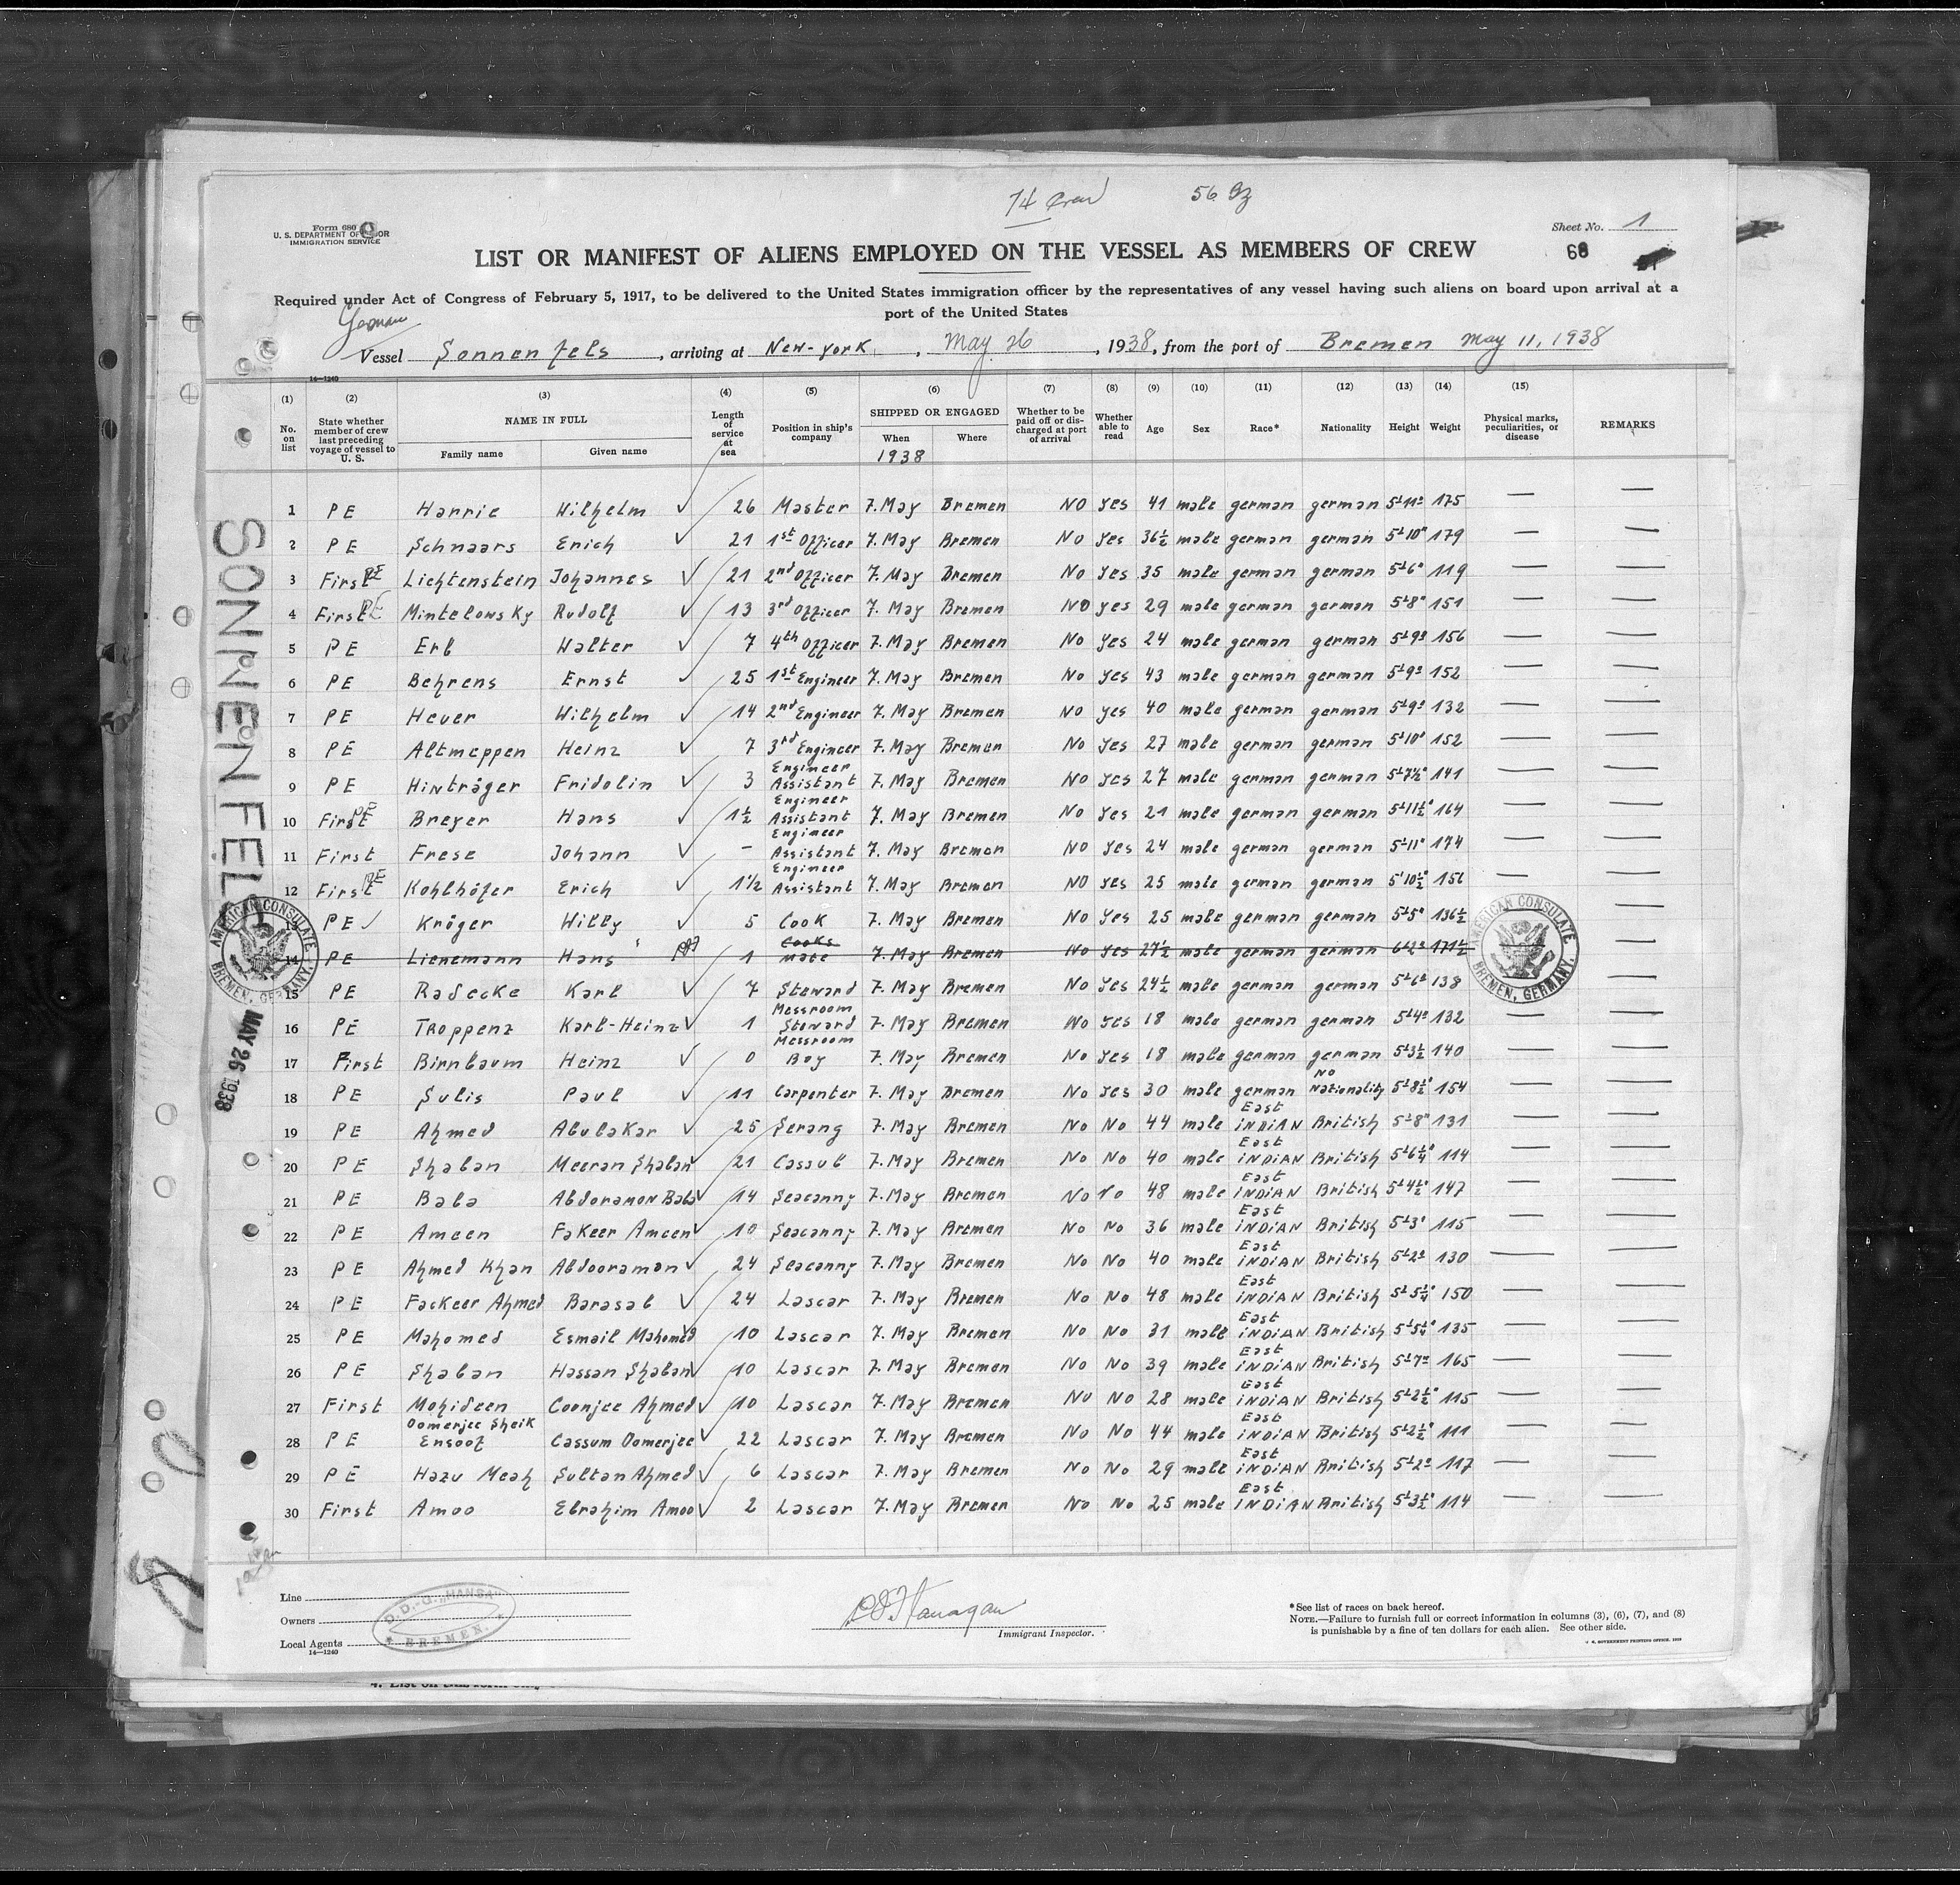 74 Crew 56
Form 680
U. S. DEPARTMENT OF LABOR
IMMIGRATION SERVICE
Sheet No. 1
LIST OR MANIFEST OF ALIENS EMPLOYED ON THE VESSEL AS MEMBERS OF CREW
68
Required under Act of Congress of February 5, 1917, to be delivered to the United States immigration officer by the representatives of any vessel having such aliens on board upon arrival at a
port of the United States
German
Vessel Sonnenfels, arriving at New-York, May 26, 1938, from the port of Bremen May 11, 1938
14—1240
(1) (2) (3) (4) (5) (6) (7) (8) (9) (10) (11) (12) (13) (14) (15)
No. on list State whether member of crew last preceding voyage of vessel to U. S. NAME IN FULL Family name Given name Length of service at sea Position in ship's company SHIPPED OR ENGAGED When 1938 Where Whether to be paid off or discharged at port of arrival Whether able to read Age Sex Race* Nationality Height Weight Physical marks, peculiarities, or disease REMARKS
1 PE Harrie Wilhelm ✓ 26 Master 7. May Bremen No Yes 41 male german german 5'11" 175 — —
2 PE Schnaars Erich ✓ 21 1st Officer 7. May Bremen No Yes 36½ male german german 5'10" 179 — —
3 First PE Lichtenstein Johannes ✓ 21 2nd Officer 7. May Bremen No Yes 35 male german german 5'6" 119 — —
4 First PE Mintelowsky Rudolf ✓ 13 3rd Officer 7. May Bremen No Yes 29 male german german 5'8" 151 — —
5 PE Erb Walter ✓ 7 4th Officer 7. May Bremen No Yes 24 male german german 5'9" 156 — —
6 PE Behrens Ernst ✓ 25 1st Engineer 7. May Bremen No Yes 43 male german german 5'9" 152 — —
7 PE Heuer Wilhelm ✓ 14 2nd Engineer 7. May Bremen No Yes 40 male german german 5'9" 132 — —
8 PE Altmeppen Heinz ✓ 7 3rd Engineer 7. May Bremen No Yes 27 male german german 5'10" 152 — —
9 PE Hinträger Fridolin ✓ 3 Engineer Assistant 7. May Bremen No Yes 27 male german german 5'7½" 141 — —
10 First PE Breyer Hans ✓ 1½ Engineer Assistant 7. May Bremen No Yes 21 male german german 5'11½" 164 — —
11 First Frese Johann ✓ - Engineer Assistant 7. May Bremen No Yes 24 male german german 5'11" 174 — —
12 First PE Kohlhöfer Erich ✓ 1½ Engineer Assistant 7. May Bremen No Yes 25 male german german 5'10½" 156 — —
13 PE ✓ Kröger Willy ✓ 5 Cook 7. May Bremen No Yes 25 male german german 5'5" 136½ —
14 PE Lienemann Hans 1 Cooks mate 7. May Bremen No Yes 27½ male german german 6'2" 171½ —
15 PE Radecke Karl ✓ 7 Steward 7. May Bremen No Yes 24½ male german german 5'6" 138 —
16 PE Troppenz Karl-Heinz ✓ 1 Messroom Steward 7. May Bremen No Yes 18 male german german 5'4" 132 — —
17 First Birnbaum Heinz ✓ 0 Messroom Boy 7. May Bremen No Yes 18 male german german 5'3½" 140 — —
18 PE Sulis Paul ✓ 11 Carpenter 7. May Bremen No Yes 30 male german No Nationality 5'8½" 154 — —
19 PE Ahmed Abubakar ✓ 25 Serang 7. May Bremen No No 44 male East INDIAN British 5'8" 131 — —
20 PE Shaban Meeran Shaban ✓ 21 Cassub 7. May Bremen No No 40 male East INDIAN British 5'6¼" 114 — —
21 PE Baba Abdoramon Baba ✓ 14 Seacanny 7. May Bremen No No 48 male East INDIAN British 5'4½" 147 — —
22 PE Ameen Fakeer Ameen ✓ 10 Seacanny 7. May Bremen No No 36 male East INDIAN British 5'3" 115 — —
23 PE Ahmed Khan Abdooraman ✓ 24 Seacanny 7. May Bremen No No 40 male East INDIAN British 5'2" 130 — —
24 PE Fackeer Ahmed Barasab ✓ 24 Lascar 7. May Bremen No No 48 male East INDIAN British 5'5¼" 150 — —
25 PE Mahomed Esmail Mahomed ✓ 10 Lascar 7. May Bremen No No 31 male East INDIAN British 5'5¼" 135 — —
26 PE Shaban Hassan Shaban ✓ 10 Lascar 7. May Bremen No No 39 male East INDIAN British 5'7" 165 — —
27 First Mohideen Coonjee Ahmed ✓ 10 Lascar 7. May Bremen No No 28 male East INDIAN British 5'2½" 115 — —
28 PE Oomerjee Sheik Ensoof Cassum Oomerjee ✓ 22 Lascar 7. May Bremen No No 44 male East INDIAN British 5'2½" 111 — —
29 PE Hazu Meah Sultan Ahmed ✓ 6 Lascar 7. May Bremen No No 29 male East INDIAN British 5'2" 117 — —
30 First Amoo Ebrahim Amoo ✓ 2 Lascar 7. May Bremen No No 25 male East INDIAN British 5'3½" 114 — —
SONNENFELS
AMERICAN CONSULATE BREMEN, GERMANY.
MAY 26 1938
AMERICAN CONSULATE BREMEN, GERMANY.
Line
Owners
Local Agents
14—1240
D. D.-G. „HANSA" BREMEN.
Flanagan
Immigrant Inspector.
*See list of races on back hereof.
NOTE.—Failure to furnish full or correct information in columns (3), (6), (7), and (8)
is punishable by a fine of ten dollars for each alien. See other side.